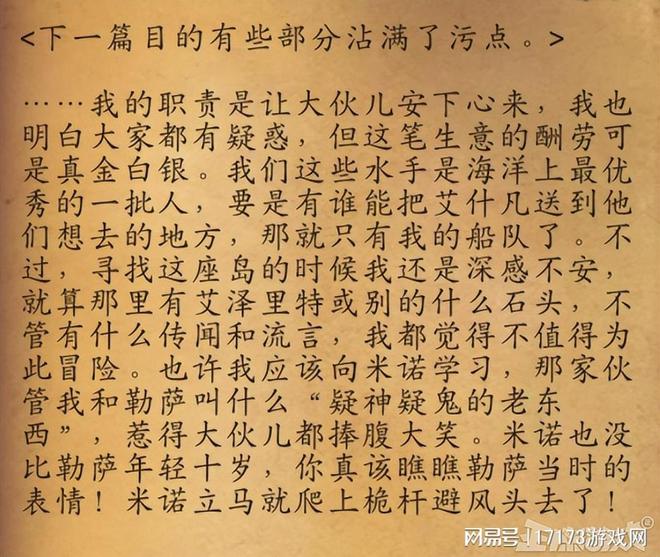 <下一篇目的有些部分沾满了污点。>
……我的职责是让大伙儿安下心来，我也
明白大家都有疑惑，但这笔生意的酬劳可
是真金白银。我们这些水手是海洋上最优
秀的一批人，要是有谁能把艾什凡送到他
们想去的地方，那就只有我的船队了。不
过，寻找这座岛的时候我还是深感不安，
就算那里有艾泽里特或别的什么石头，不
管有什么传闻和流言，我都觉得不值得为
此冒险。也许我应该向米诺学习，那家伙
管我和勒萨叫什么“疑神疑鬼的老东
西”，惹得大伙儿都捧腹大笑。米诺也没
比勒萨年轻十岁，你真该瞧瞧勒萨当时的
表情！米诺立马就爬上桅杆避风头去了！
网易号 | 17173游戏网